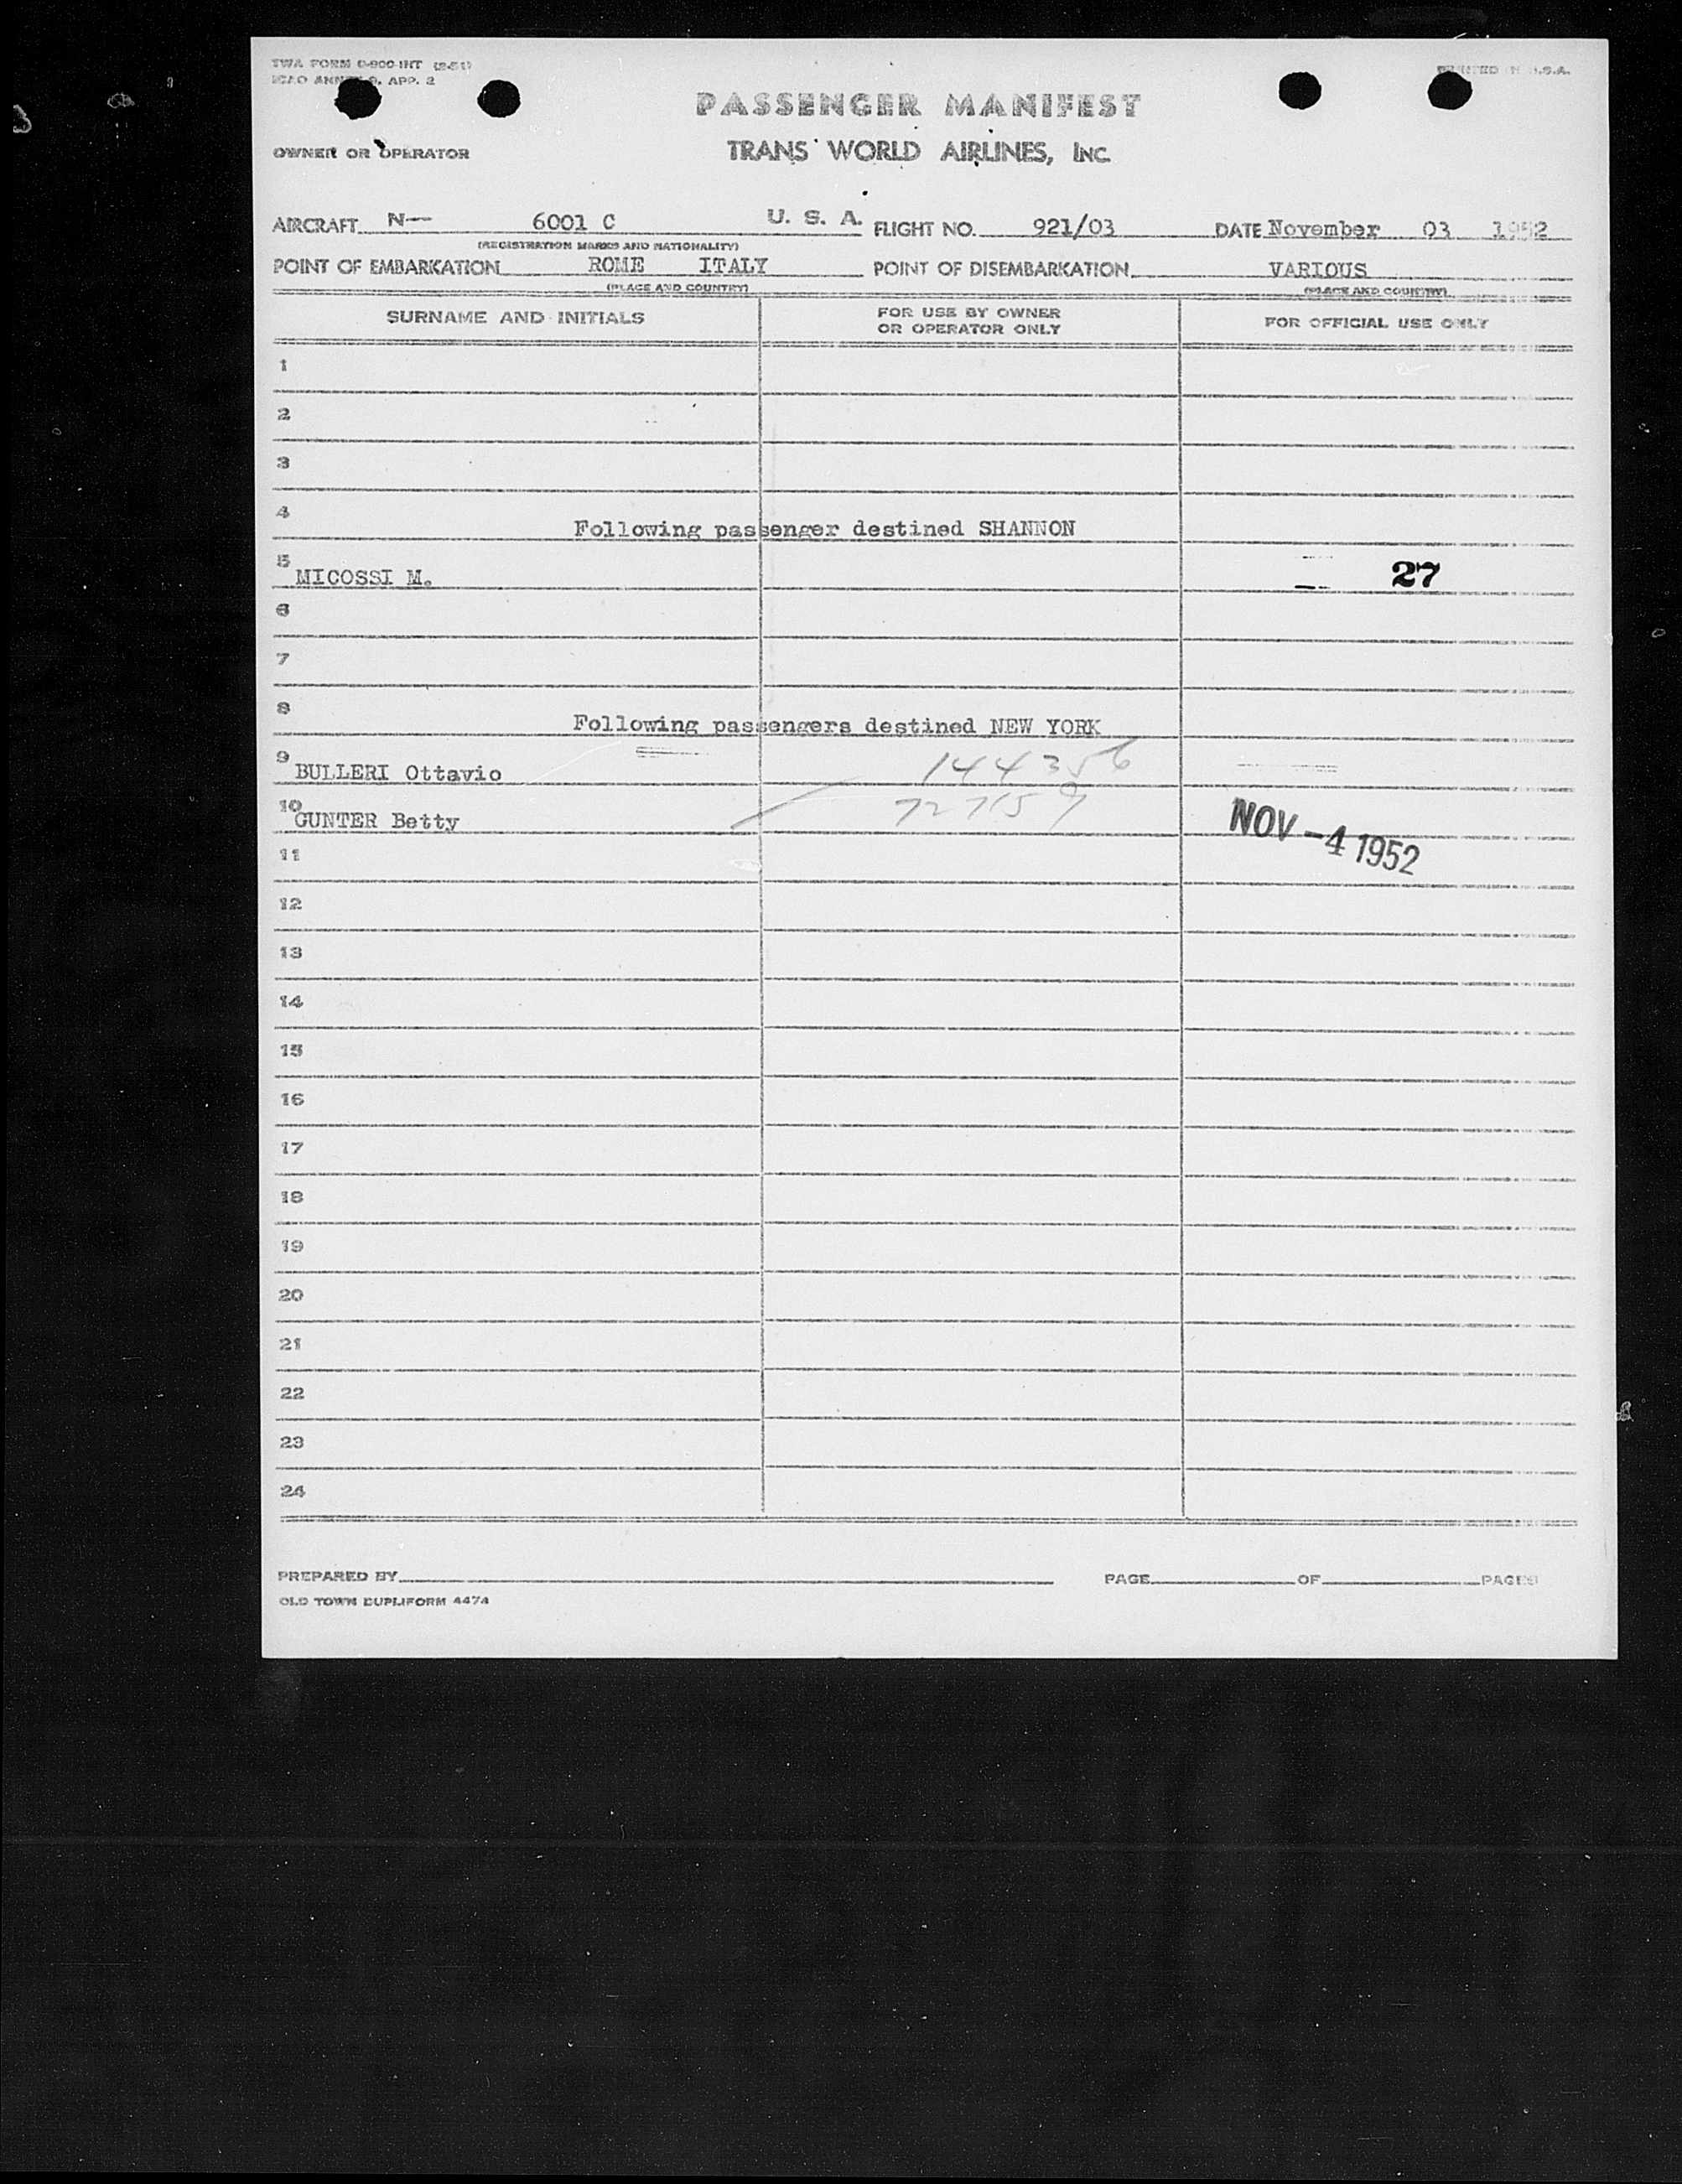 TWA FORM 0-900-INT (2-51)
ICAO ANNEX 9, APP. 2
PRINTED IN U.S.A.
PASSENGER MANIFEST
OWNER OR OPERATOR TRANS WORLD AIRLINES, INC.
AIRCRAFT N— 6001 C U. S. A. FLIGHT NO. 921/03 DATE November 03 1952
(REGISTRATION MARKS AND NATIONALITY)
POINT OF EMBARKATION ROME ITALY POINT OF DISEMBARKATION VARIOUS
(PLACE AND COUNTRY) (PLACE AND COUNTRY)
SURNAME AND INITIALS FOR USE BY OWNER OR OPERATOR ONLY FOR OFFICIAL USE ONLY
1
2
3
4 Following passenger destined SHANNON
5 MICOSSI M. 27
6
7
8 Following passengers destined NEW YORK
9 BULLERI Ottavio 144356
10 GUNTER Betty 727159
NOV -4 1952
11
12
13
14
15
16
17
18
19
20
21
22
23
24
PREPARED BY PAGE OF PAGES
OLD TOWN DUPLIFORM 4474